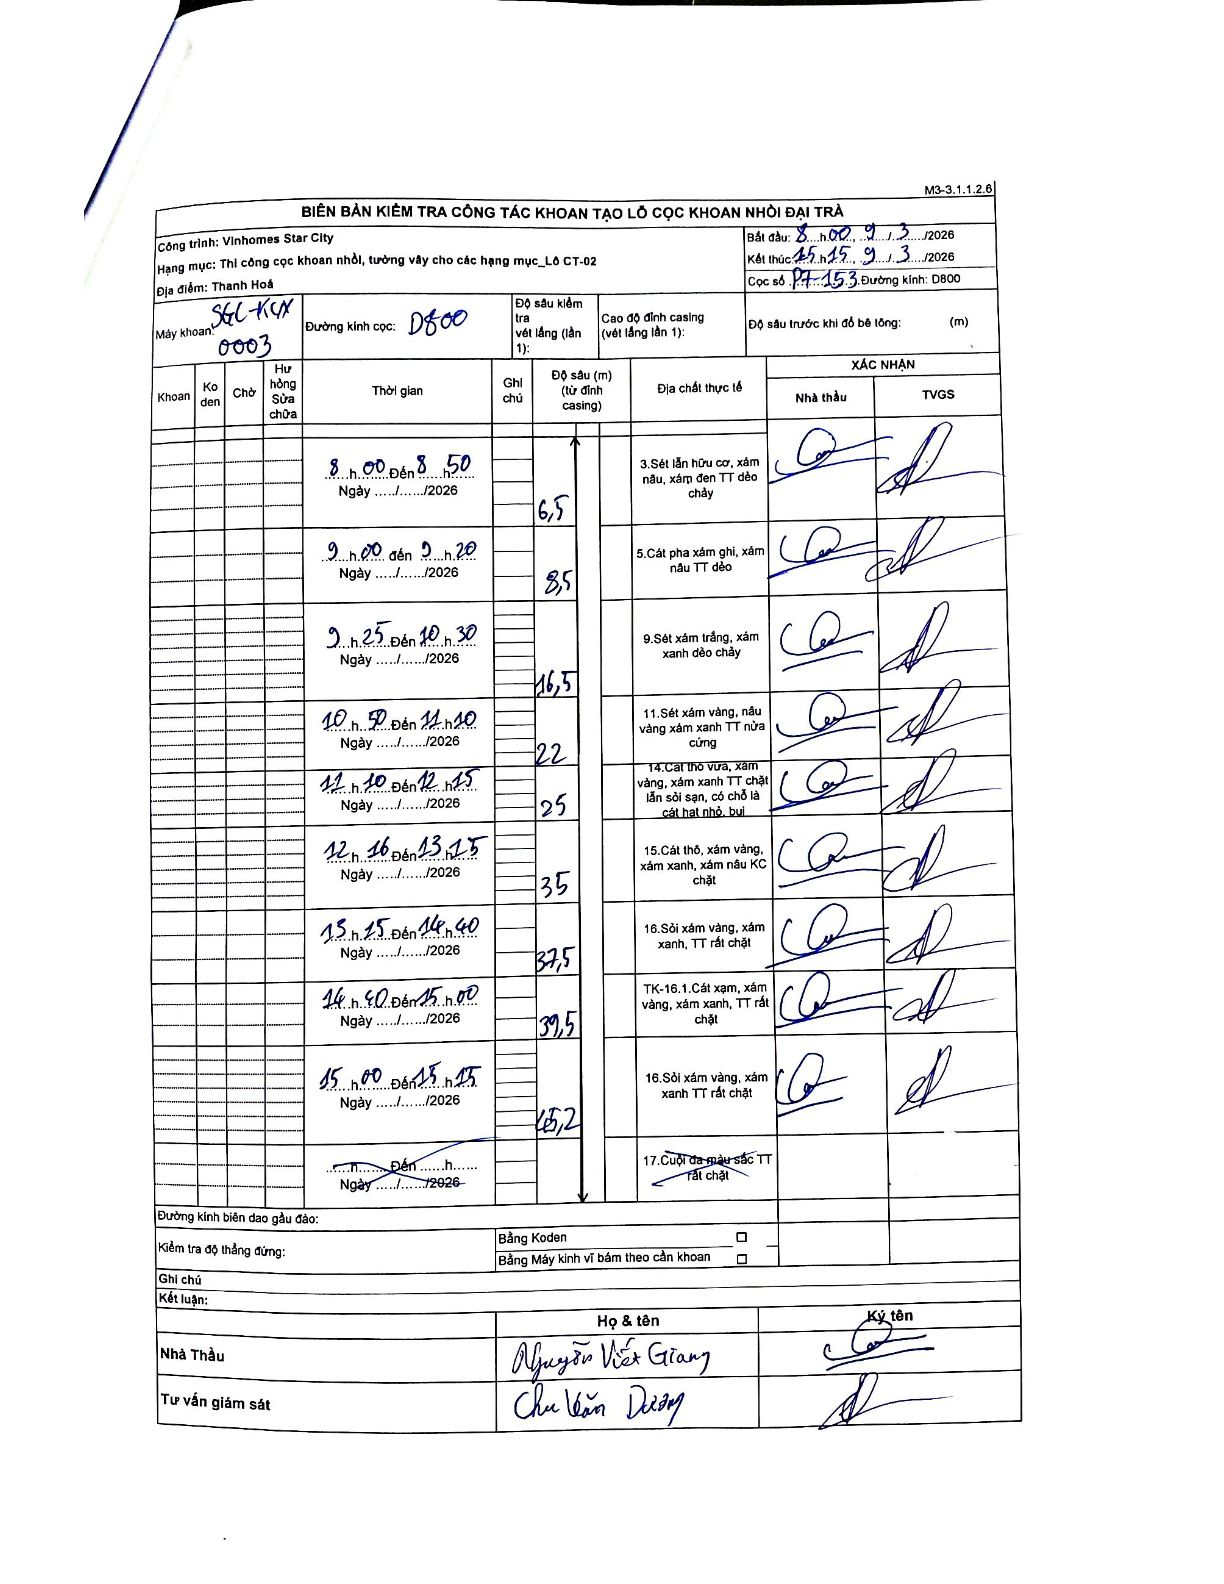 M3-3.1.1.2.6
BIÊN BẢN KIỂM TRA CÔNG TÁC KHOAN TẠO LỖ CỌC KHOAN NHỒI ĐẠI TRÀ
Công trình: Vinhomes Star City
Hạng mục: Thi công cọc khoan nhồi, tường vây cho các hạng mục_Lô CT-02
Địa điểm: Thanh Hoá
Bắt đầu: 8 h 00, 9 / 3 /2026
Kết thúc 15 h 15, 9 / 3 /2026
Cọc số P7-153 Đường kính: D800
Máy khoan: SGC-KCX 0003
Đường kính cọc: D800
Độ sâu kiểm tra
vét lắng (lần 1):
Cao độ đỉnh casing
(vét lắng lần 1):
Độ sâu trước khi đổ bê tông: (m)
Khoan
Ko den
Chờ
Hư hỏng Sửa chữa
Thời gian
Ghi chú
Độ sâu (m)
(từ đỉnh casing)
Địa chất thực tế
XÁC NHẬN
Nhà thầu
TVGS
8 h 00 Đến 8 h 50
Ngày ...../....../2026
6,5
3.Sét lẫn hữu cơ, xám
nâu, xám đen TT dẻo
chảy
9 h 00 đến 9 h 20
Ngày ...../....../2026
8,5
5.Cát pha xám ghi, xám
nâu TT dẻo
9 h 25 Đến 10 h 30
Ngày ...../....../2026
16,5
9.Sét xám trắng, xám
xanh dẻo chảy
10 h 50 Đến 11 h 10
Ngày ...../....../2026
22
11.Sét xám vàng, nâu
vàng xám xanh TT nửa
cứng
11 h 10 Đến 12 h 15
Ngày ...../....../2026
25
14.Cát thô vừa, xám
vàng, xám xanh TT chặt
lẫn sỏi sạn, có chỗ là
cát hạt nhỏ, bụi
12 h 16 Đến 13 h 15
Ngày ...../....../2026
35
15.Cát thô, xám vàng,
xám xanh, xám nâu KC
chặt
13 h 15 Đến 14 h 40
Ngày ...../....../2026
37,5
16.Sỏi xám vàng, xám
xanh, TT rất chặt
14 h 40 Đến 15 h 00
Ngày ...../....../2026
39,5
TK-16.1.Cát xạm, xám
vàng, xám xanh, TT rất
chặt
15 h 00 Đến 15 h 15
Ngày ...../....../2026
45,2
16.Sỏi xám vàng, xám
xanh TT rất chặt
......h....... Đến ......h......
Ngày ...../....../2026
17.Cuội đa màu sắc TT
rất chặt
Đường kính biên dao gầu đào:
Kiểm tra độ thẳng đứng:
Bằng Koden
Bằng Máy kinh vĩ bám theo cần khoan
Ghi chú
Kết luận:
Họ & tên
Ký tên
Nhà Thầu
Nguyễn Viết Giang
Tư vấn giám sát
Chu Văn Dương